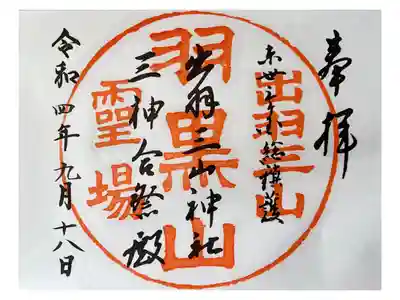 奉拝
出羽三山
総鎮護
羽黒山
出羽三山神社
三神合祭殿
靈場
令和四年九月十八日